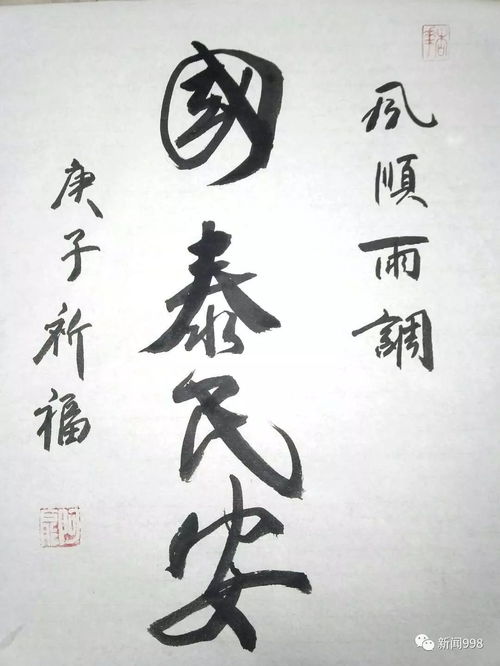 風順雨調
國泰民安
庚子祈福
新闻998